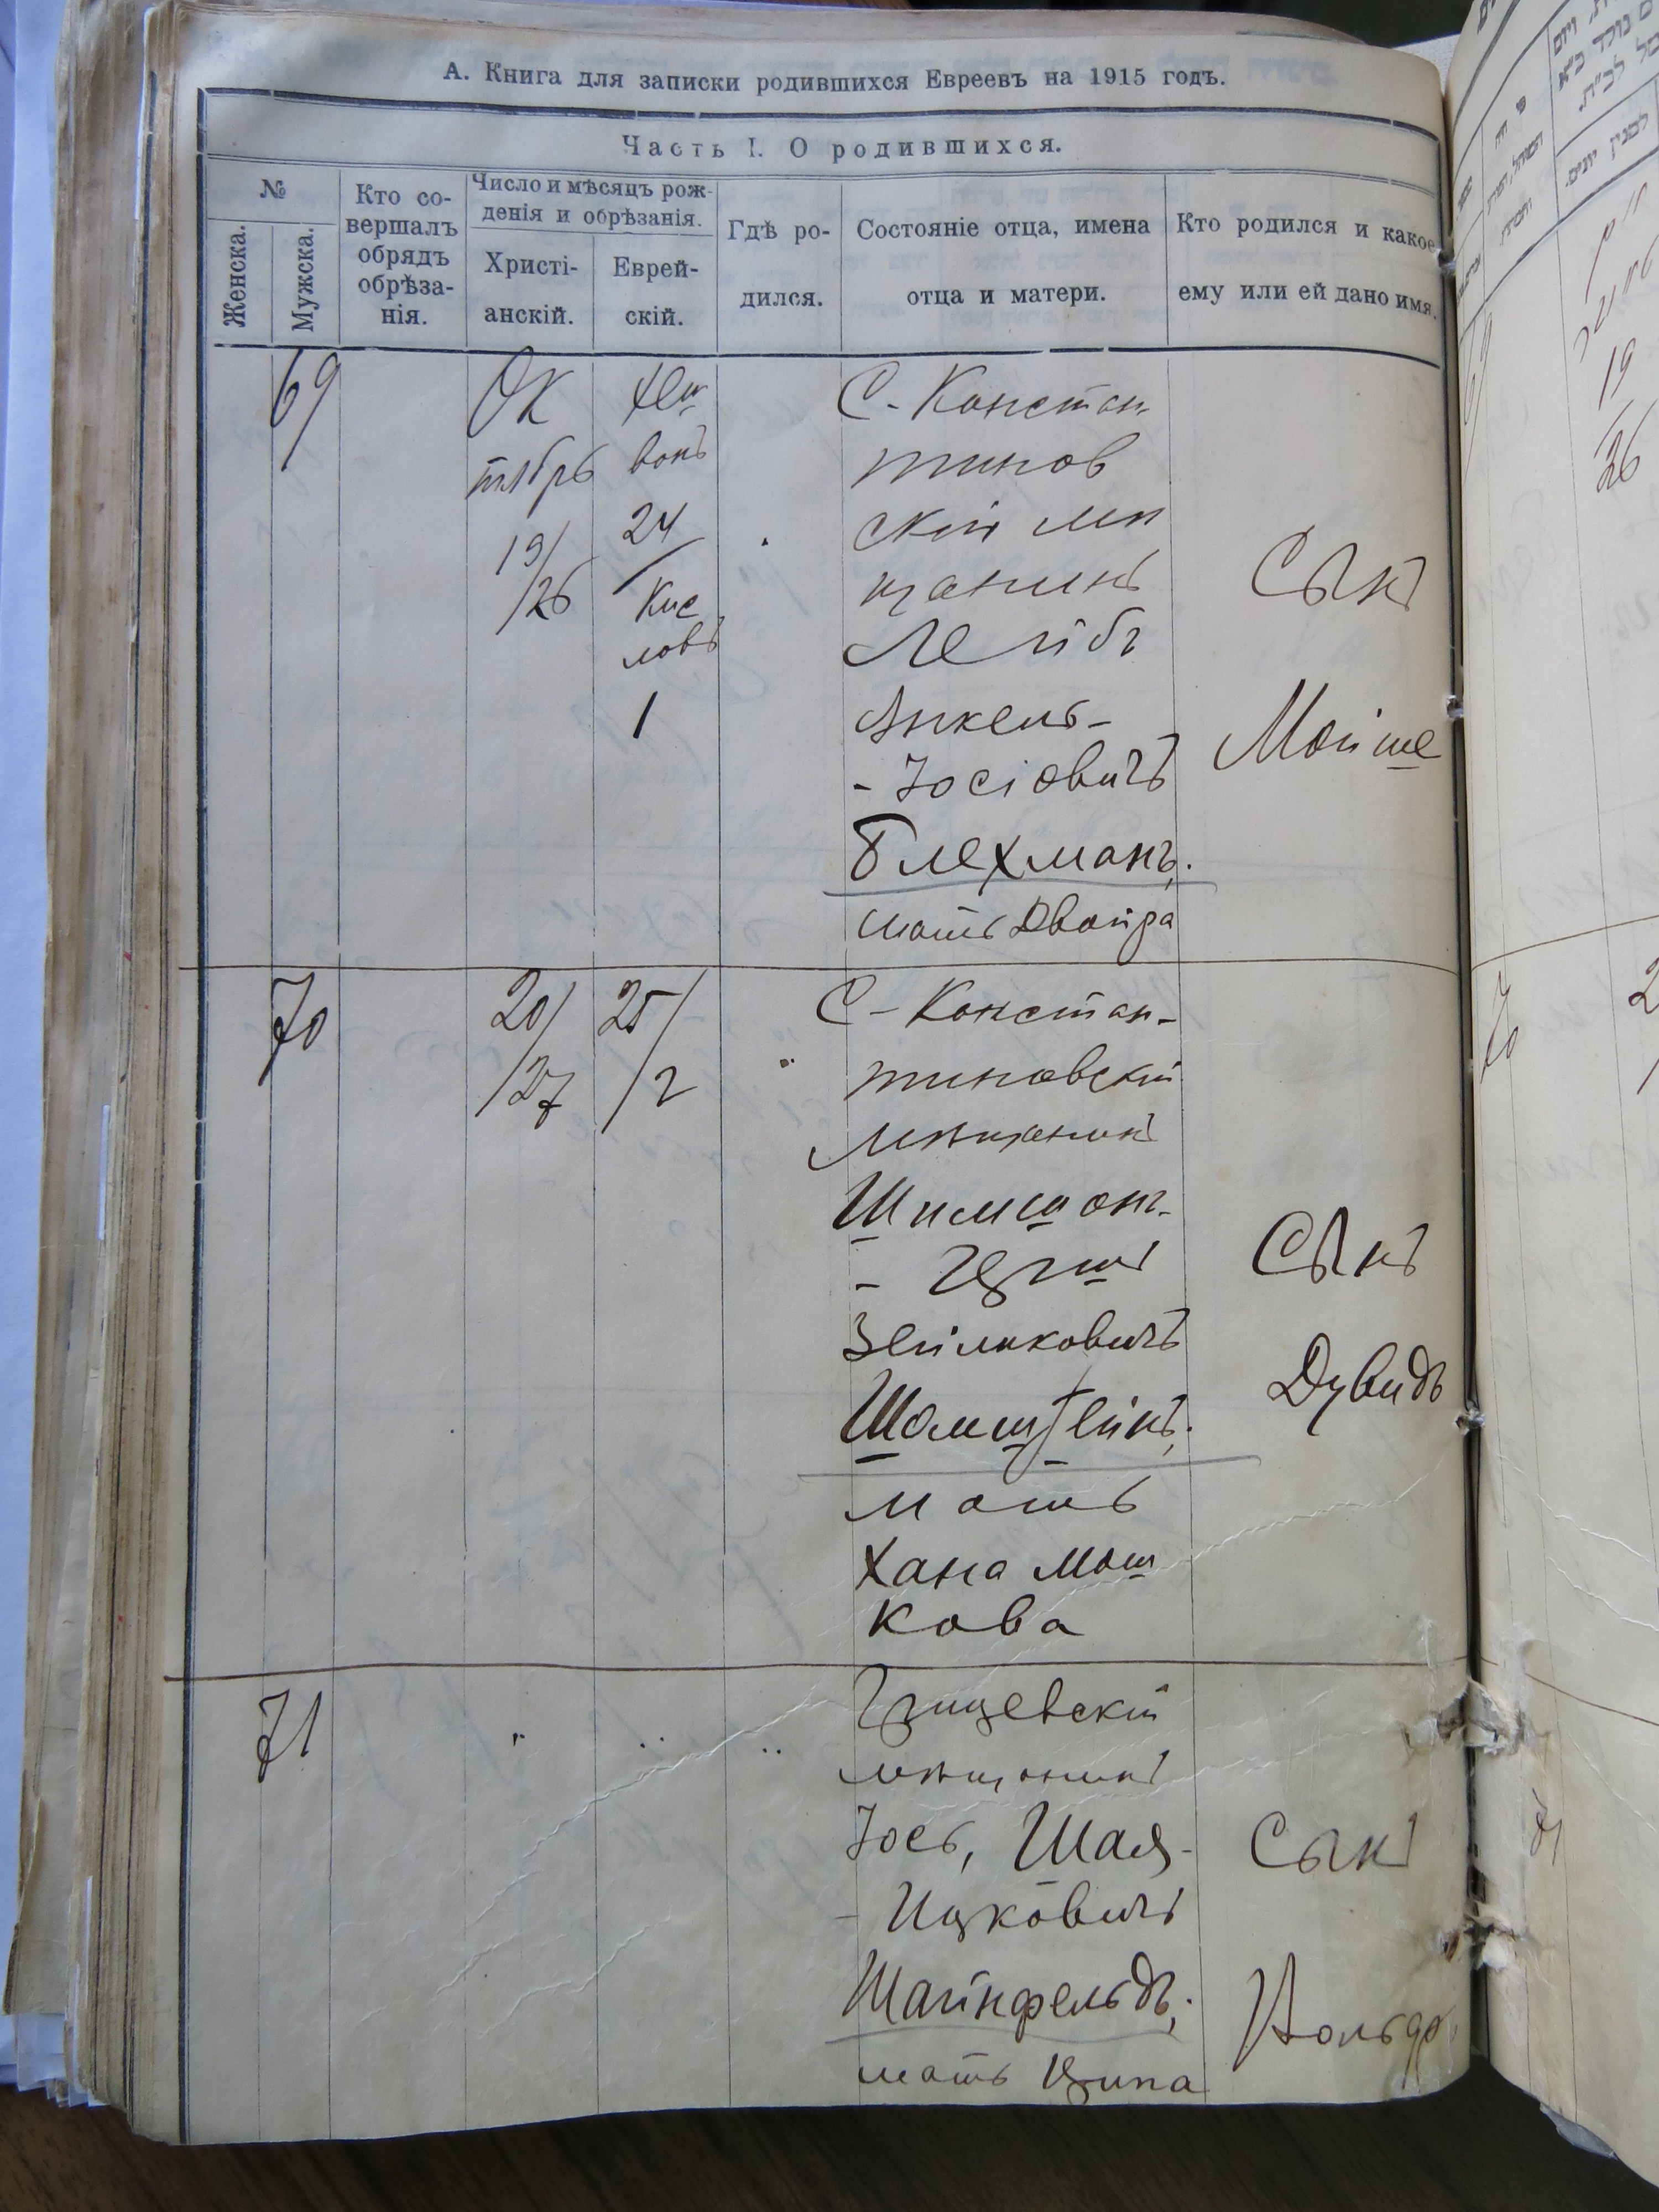 А. Книга для записки родившихся Евреевъ на 1915 годъ.
Часть I. О родившихся.
№
Женска.
Мужска.
Кто со-
вершалъ
обрядъ
обрѣза-
нія.
Число и мѣсяцъ рож-
денія и обрѣзанія.
Христі-
анскій.
Еврей-
скій.
Гдѣ ро-
дился.
Состояніе отца, имена
отца и матери.
Кто родился и какое
ему или ей дано имя.
69
Ок
тябрь
19/
/26
Хеш
вонъ
24
Кис
ловъ
1
С-Констан
тинов
скій мѣ
щанинъ
Лейбъ
Янкель-
-Іосіовичъ
Блехманъ,
мать Двойра
Сынъ
Мойше
70
20/
/27
25/
/2
"
С-Констан-
тиновскій
мѣщанинъ
Шимшонъ-
- Гершъ
Зейликовичъ
Шолмштейнъ,
мать
Хана Мош
кова
Сынъ
Дувидъ
71
"
"
"
Грицевскій
мѣщанинъ
Іось, Шая-
- Ицковичъ
Шайнфельдъ,
мать Ципа
Сынъ
19
26